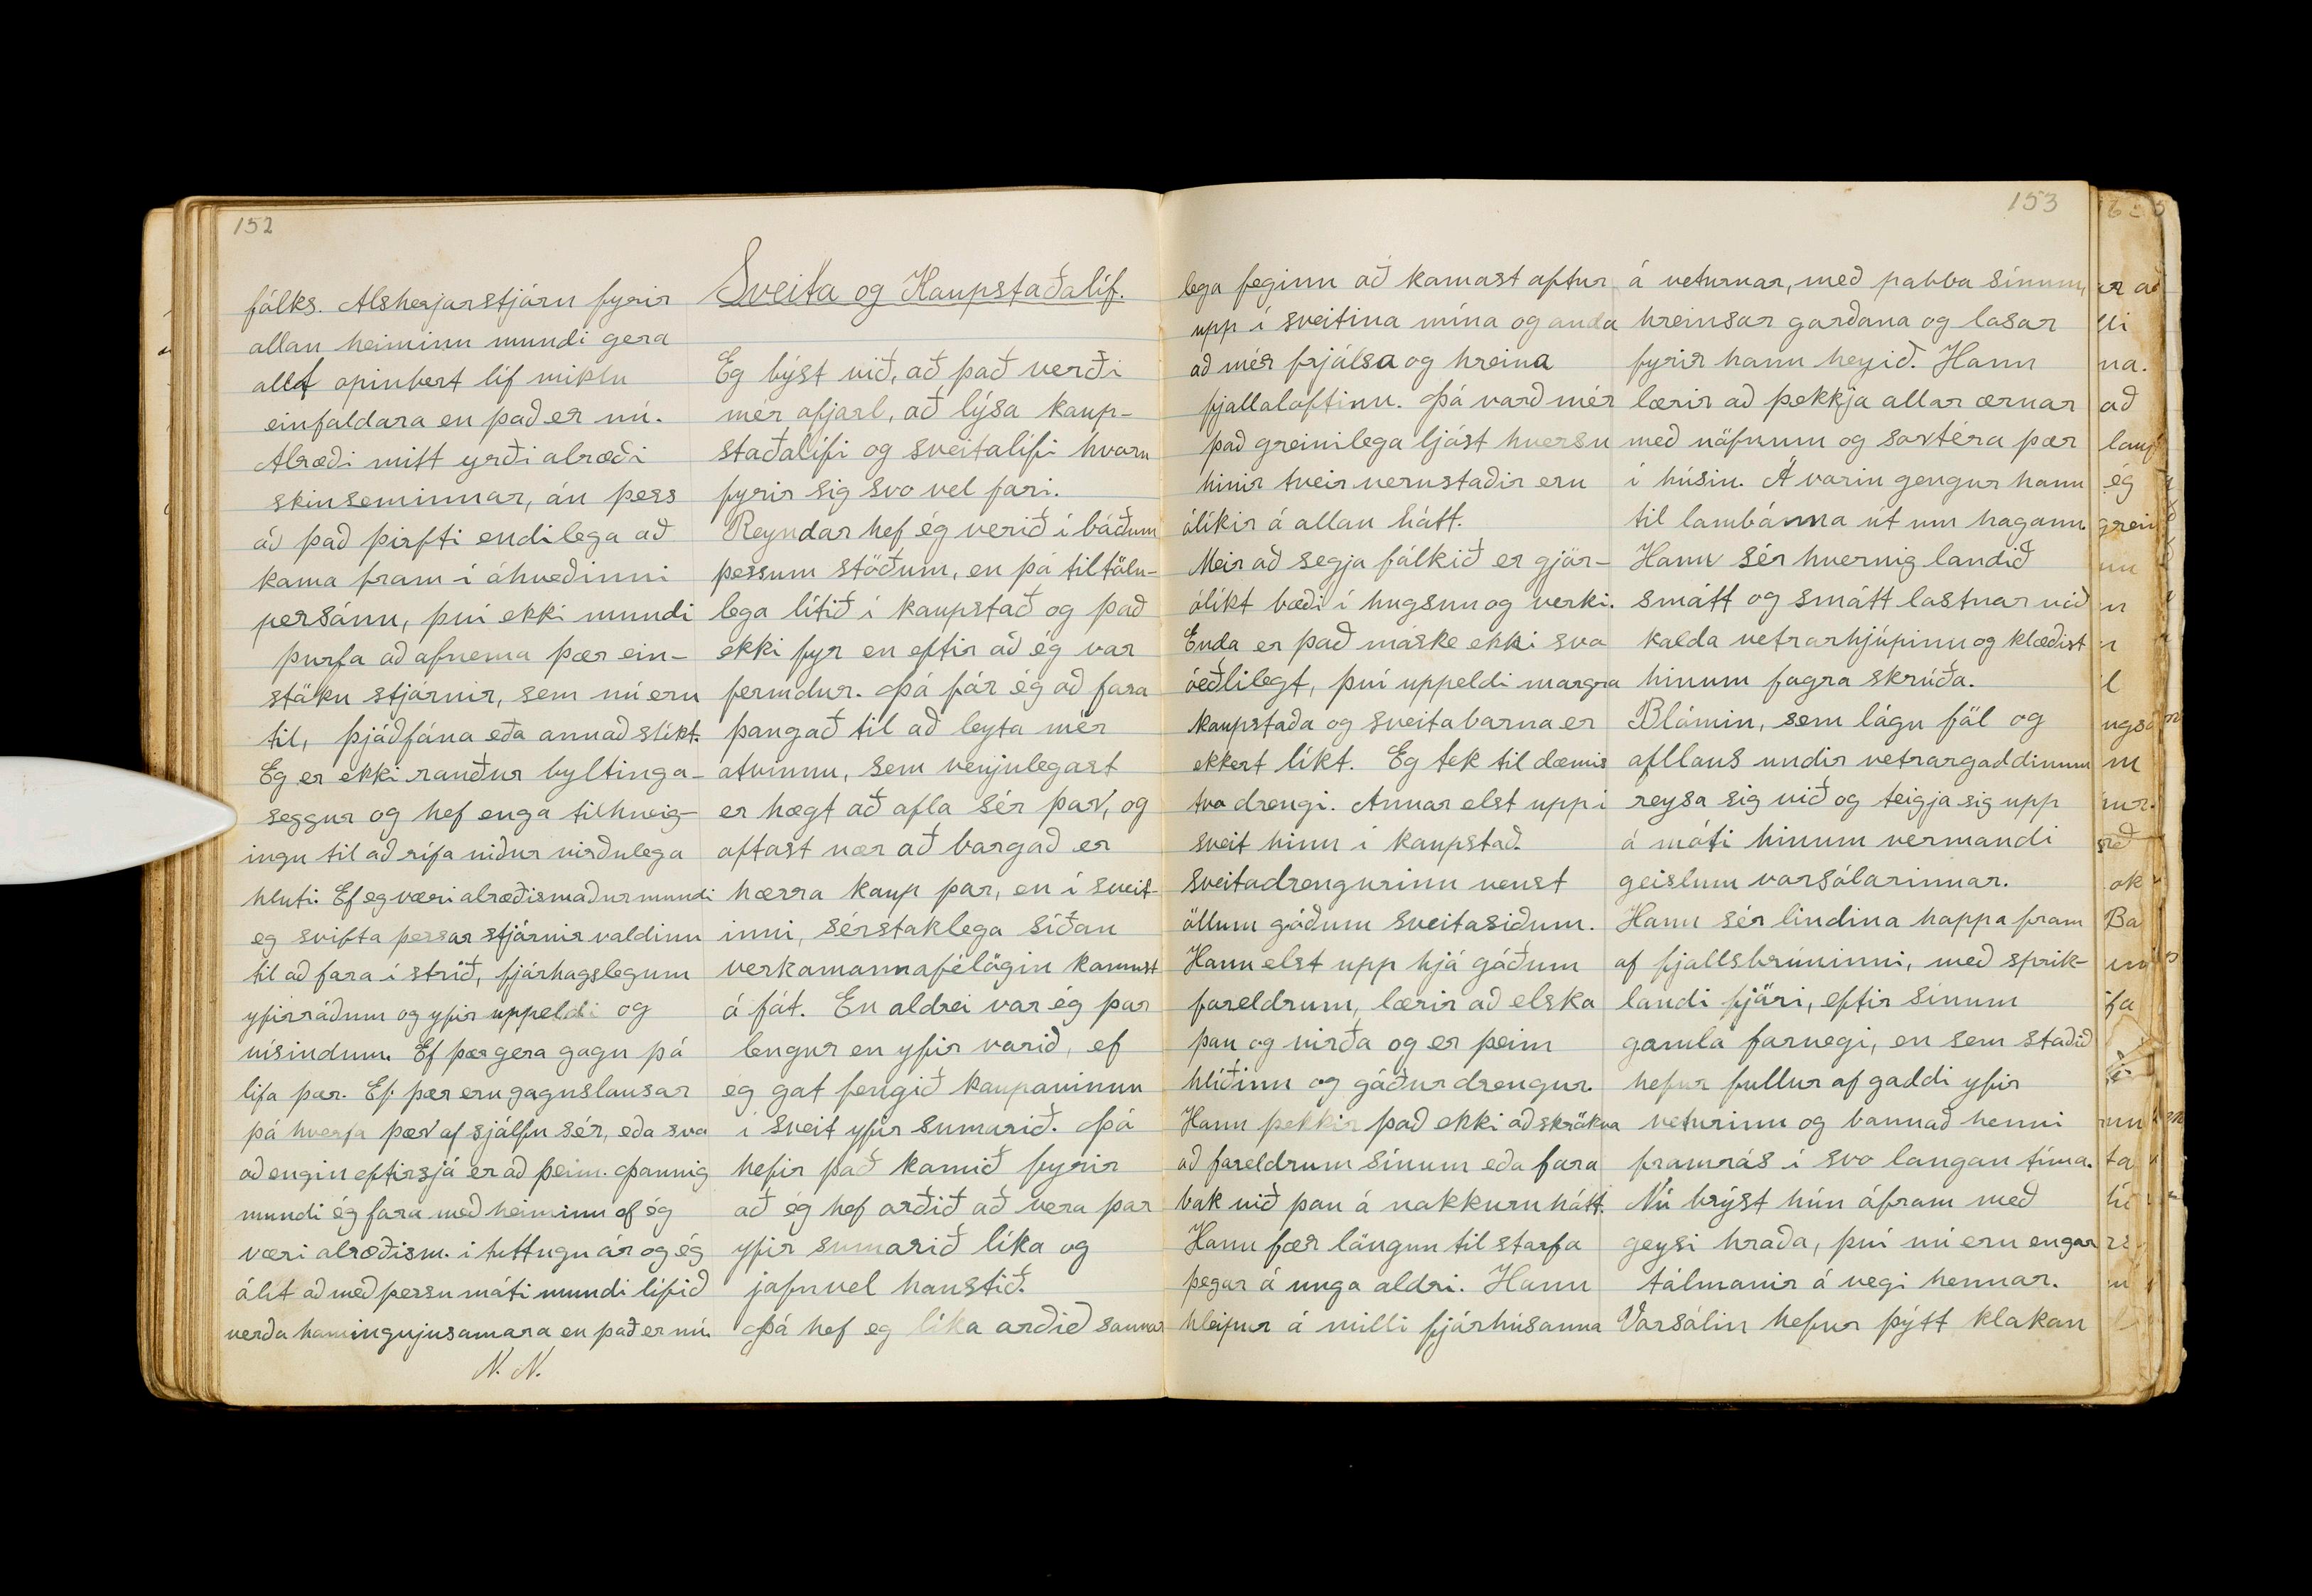 152
fólks. Alsherjarstjórn fyrir
allan heiminn mundi gera
allt opinbert líf miklu
einfaldara en það er nú.
Alræði mitt yrði alræði
skinseminnar, án þess
að það þirfti endilega að
koma fram í áhveðinni
persónu, því ekki mundi
þurfa að afnema þær ein-
stöku stjórnir, sem nú eru
til, þjóðfána eða annað slíkt.
Eg er ekki rauður byltinga-
seggur og hef enga tilhneig-
ingu til að rífa niður virðulega
hluti. Ef eg væri alræðismaður mundi
eg svifta þessar stjórnir valdinu
til að fara í stríð, fjárhagslegum
yfirráðum og yfir uppeldi og
vísindum. Ef þær gera gagn þá
lifa þær. Ef þær eru gagnslausar
þá hverfa þær af sjálfu sér, eða svo
að engin eftirsjá er að þeim. Þannig
mundi ég fara með heiminn ef ég
væri alræðism. i tuttugu ár og ég
álít að með þessu móti mundi lífið
verða hamingjusamara en það er nú.
N. N.
Sveita og Kaupstaðalíf.
Eg býst við, að það verði
mér ofjarl, að lýsa kaup-
staðalífi og sveitalífi hvoru
fyrir sig svo vel fari.
Reyndar hef ég verið í báðum
þessum stöðum, en þó tiltölu-
lega lítið í kaupstað og það
ekki fyr en eftir að ég var
fermdur. Þá fór ég að fara
þangað til að leyta mér
atvinnu, sem venjulegast
er hægt að afla sér þar, og
oftast nær að borgað er
hærra kaup þar, en í sveit-
inni, sérstaklega síðan
verkamannafélögin komust
á fót. En aldrei var ég þar
lengur en yfir vorið, ef
ég gat fengið kaupavinnu
í sveit yfir sumarið. Þó
hefir það komið fyrir
að ég hef orðið að vera þar
yfir sumarið líka og
jafnvel haustið.
Þá hef eg líka orðið sannar
153
lega feginn að komast aftur
upp í sveitina mína og anda
að mér frjálsa og hreina
fjallaloftinu. Þá varð mér
það greinilega ljóst hversu
hinir tveir verustaðir eru
ólíkir á allan hátt.
Meir að segja fólkið er gjör-
ólíkt bæði í hugsun og verki.
Enda er það máske ekki svo
óeðlilegt, því uppeldi margra
kaupstaða og sveitabarna er
ekkert líkt. Eg tek til dæmis
tvo drengi. Annar elst upp í
sveit hinn í kaupstað.
Sveitadrengurinn venst
öllum góðum sveitasiðum.
Hann elst upp hjá góðum
foreldrum, lærir að elska
þau og virða og er þeim
hlíðinn og góður drengur.
Hann þekkir það ekki að skrökva
að foreldrum sínum eða fara
bak við þau á nokkurn hátt.
Hann fær löngun til starfa
þegar á unga aldri. Hann
hleipur á milli fjárhúsanna
á veturnar, með pabba sínum,
hreinsar garðana og losar
fyrir hann heyið. Hann
lærir að þekkja allar ærnar
með nöfnum og sortéra þær
í húsin. Á vorin gengur hann
til lambánna út um hagann.
Hann sér hvernig landið
smátt og smátt losnar við
kalda vetrarhjúpinn og klæðist
hinum fagra skrúða.
Blómin, sem lágu föl og
afllaus undir vetrargaddinum
reysa sig við og teigja sig upp
á móti hinum vermandi
geislum vorsólarinnar.
Hann sér lindina hoppa fram
af fjallsbrúninni, með sprik-
landi fjöri, eftir sínum
gamla farvegi, en sem staðið
hefur fullur af gaddi yfir
veturinn og bannað henni
framrás í svo langan tíma.
Nú brýst hún áfram með
geysi hraða, því nú eru engar
tálmanir á vegi hennar.
Vorsólin hefur þýtt klakan